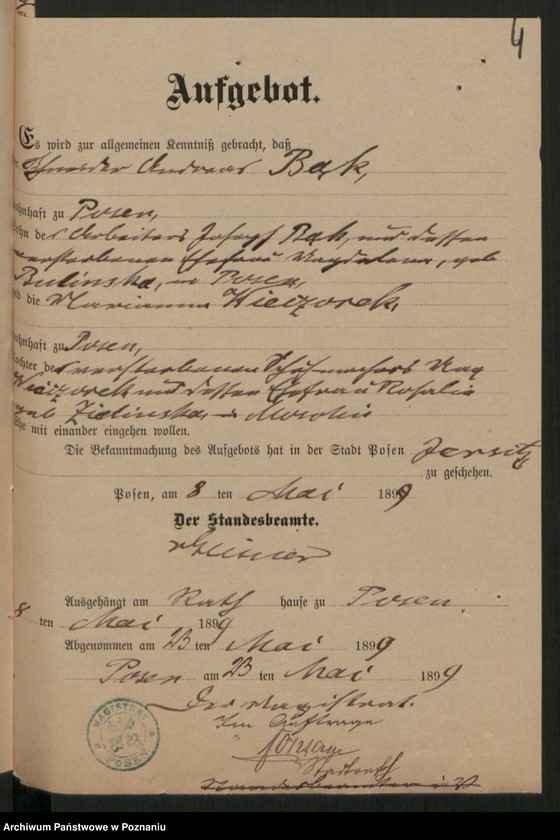 4
Aufgebot.
Es wird zur allgemeinen Kenntniß gebracht, daß
Schneider Andreas Bąk,
wohnhaft zu Posen,
Sohn des Arbeiters Josef Bąk, und dessen
verstorbenen Ehefrau Magdalena, geb
Bulinska, in Posen,
und die Marianna Wieczorek,
wohnhaft zu Posen,
Tochter des verstorbenen Schuhmachers
Wieczorek und dessen Ehefrau Rosalie
geb Zielinska, in
Ehe mit einander eingehen wollen.
Die Bekanntmachung des Aufgebots hat in der Stadt Posen Jersitz
zu geschehen.
Posen, am 8 ten Mai 1899
Der Standesbeamte.
Ausgehängt am Rath hause zu Posen.
8 ten Mai 1899
Abgenommen am 23 ten Mai 1899
Posen am 23 ten Mai 1899
Der Magistrat.
Im Auftrage
Stadtrath
MAGISTRAT
POSEN
Archiwum Państwowe w Poznaniu